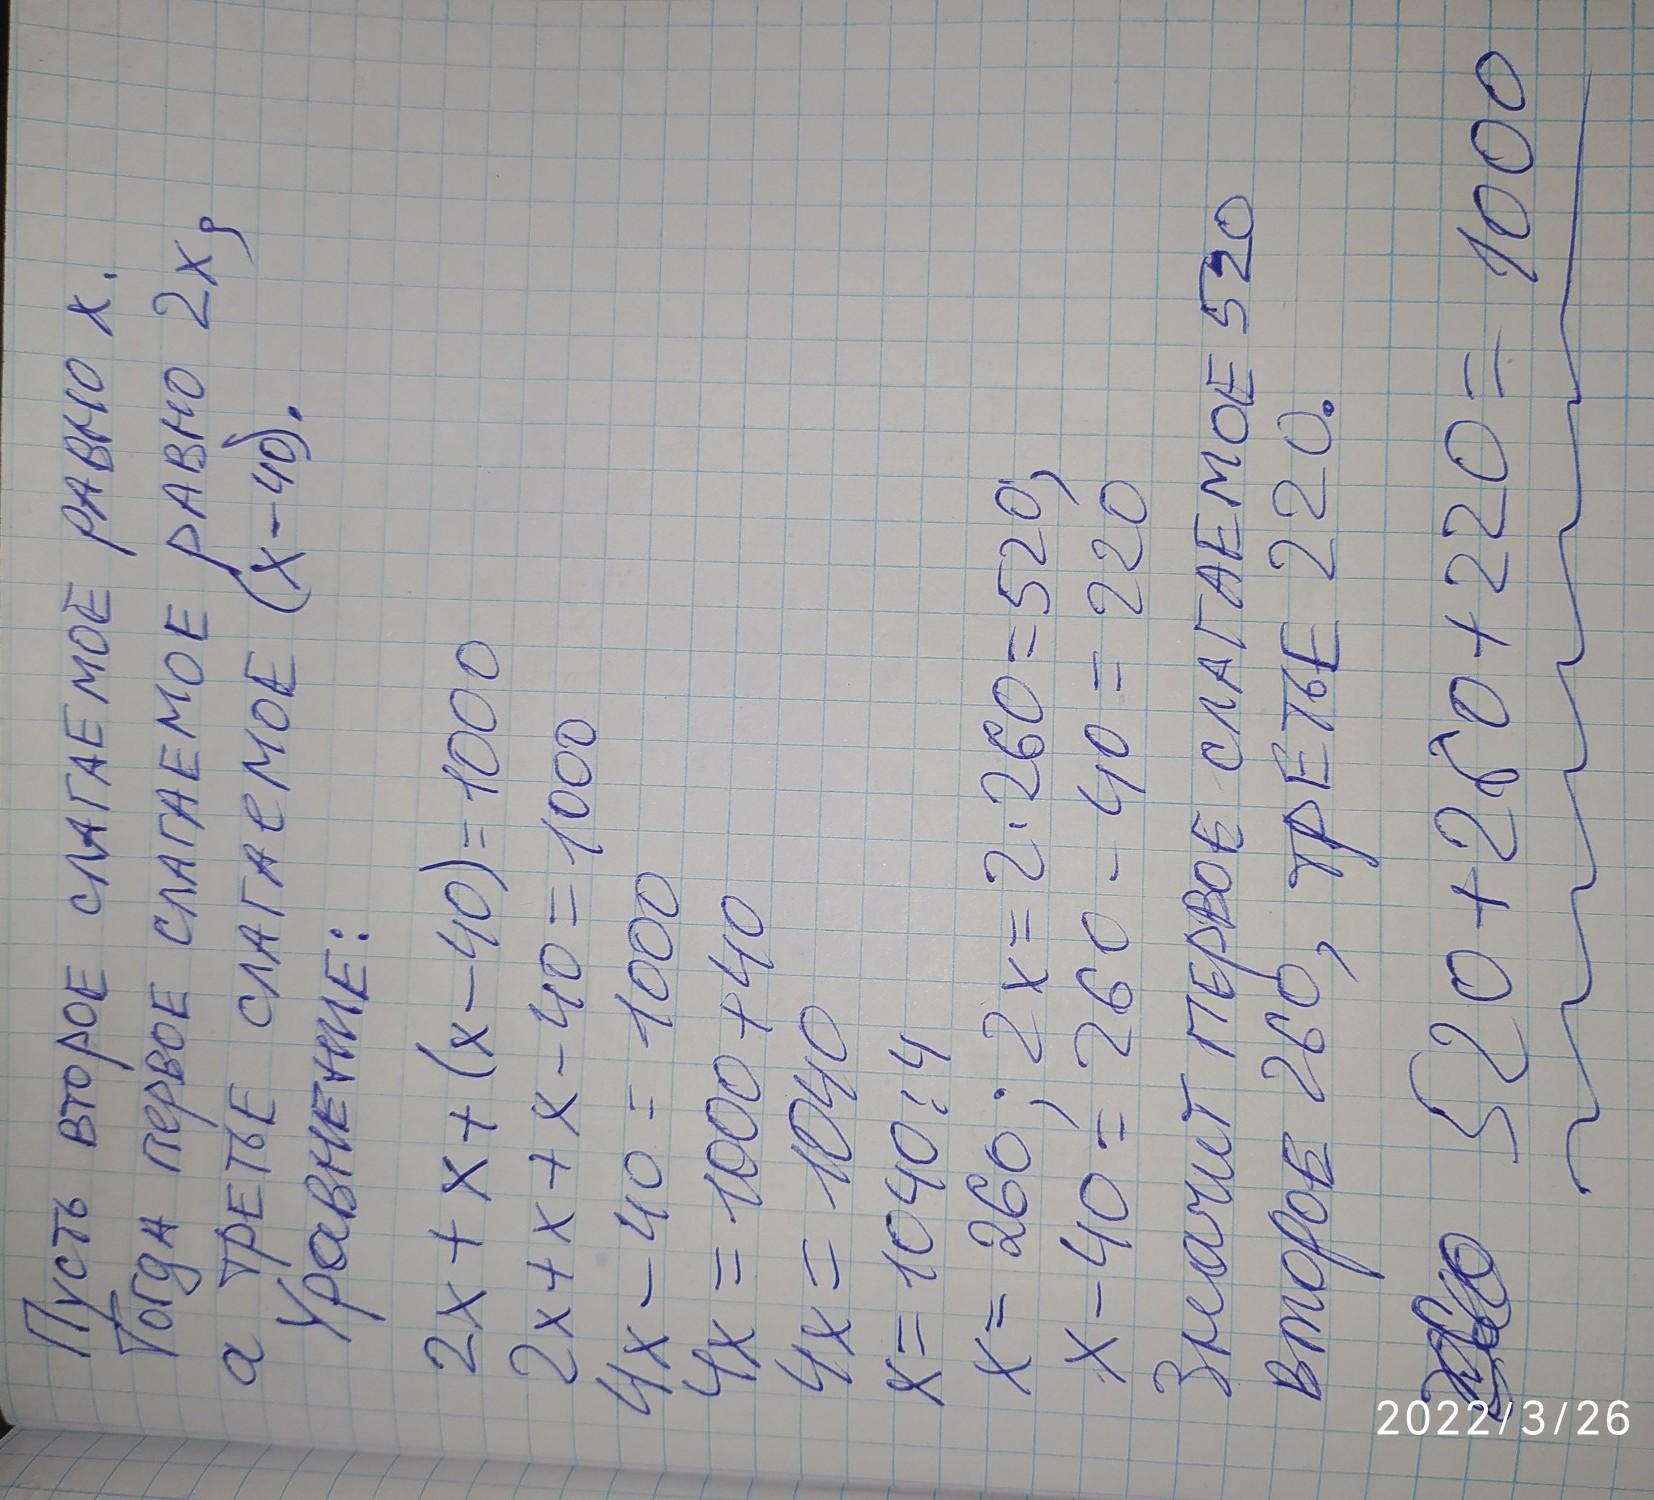 Пусть второе слагаемое равно x.
Тогда первое слагаемое равно 2x,
а третье слагаемое (x-40).
Уравнение:
2x+x+(x-40)=1000
2x+x+x-40=1000
4x-40=1000
4x=1000+40
4x=1040
x=1040:4
x=260; 2x=2·260=520,
x-40=260-40=220
Значит первое слагаемое 520
второе 260, третье 220.
520+260+220=1000
2022/3/26